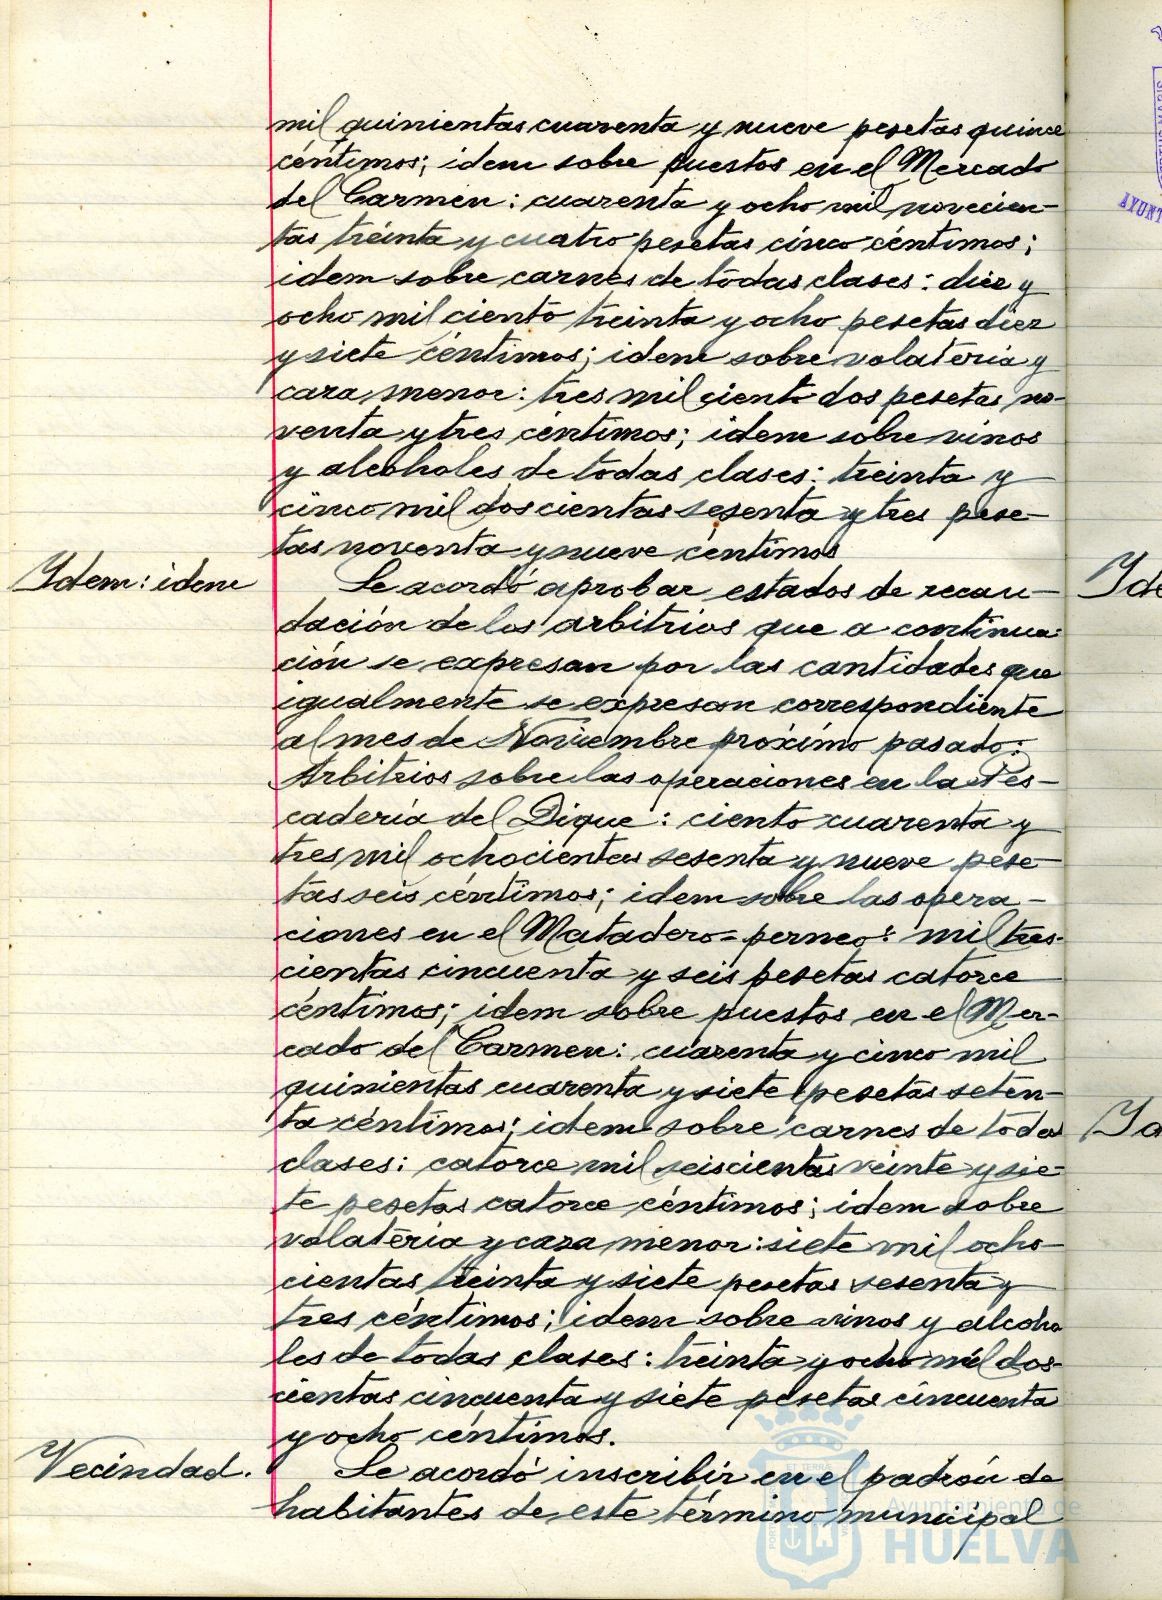 mil quinientas cuarenta y nueve pesetas quince
céntimos; idem sobre puestos en el Mercado
del Carmen: cuarenta y ocho mil novecien-
tas treinta y cuatro pesetas cinco céntimos;
idem sobre carnes de todas clases: diez y
ocho mil ciento treinta y ocho pesetas diez
y siete céntimos; idem sobre volatería y
caza menor: tres mil ciento dos pesetas no-
venta y tres céntimos; idem sobre vinos
y alcoholes de todas clases: treinta y
cinco mil doscientas sesenta y tres pese-
tas noventa y nueve céntimos
Idem: idem
Se acordó aprobar estados de recau-
dación de los arbitrios que a continua-
ción se expresan por las cantidades que
igualmente se expresan correspondiente
al mes de Noviembre próximo pasado:
Arbitrios sobre las operaciones en la Pes-
cadería del Dique: ciento cuarenta y
tres mil ochocientas sesenta y nueve pese-
tas seis céntimos; idem sobre las opera-
ciones en el Matadero-perneo: mil tres-
cientas cincuenta y seis pesetas catorce
céntimos; idem sobre puestos en el Mer-
cado del Carmen: cuarenta y cinco mil
quinientas cuarenta y siete pesetas seten-
ta céntimos; idem sobre carnes de todas
clases: catorce mil seiscientas veinte y sie-
te pesetas catorce céntimos; idem sobre
volatería y caza menor: siete mil ocho-
cientas treinta y siete pesetas sesenta y
tres céntimos; idem sobre vinos y alcoho
les de todas clases: treinta y ocho mil dos-
cientas cincuenta y siete pesetas cincuenta
y ocho céntimos.
Vecindad.
Se acordó inscribir en el padrón de
habitantes de este término municipal
Ayuntamiento de
HUELVA
Ide
AYUNT